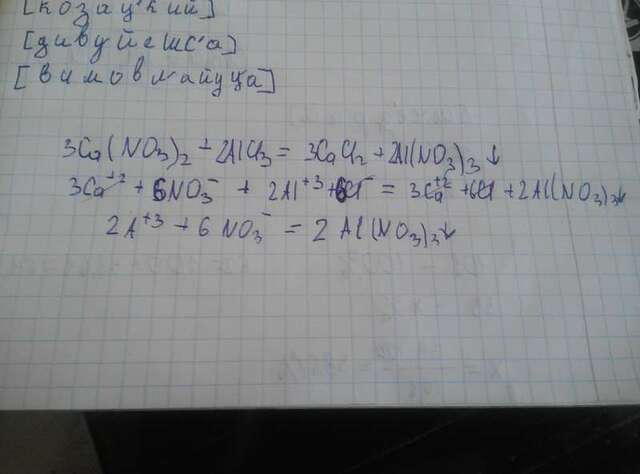 [козац'кий]
[дивуйешс'а]
[вимовл'айуца]
3Ca(NO3)2 + 2AlCl3 = 3CaCl2 + 2Al(NO3)3↓
3Ca+2 + 6NO3- + 2Al+3 + 6Cl- = 3Ca+2 + 6Cl + 2Al(NO3)3↓
2A+3 + 6NO3- = 2Al(NO3)3↓